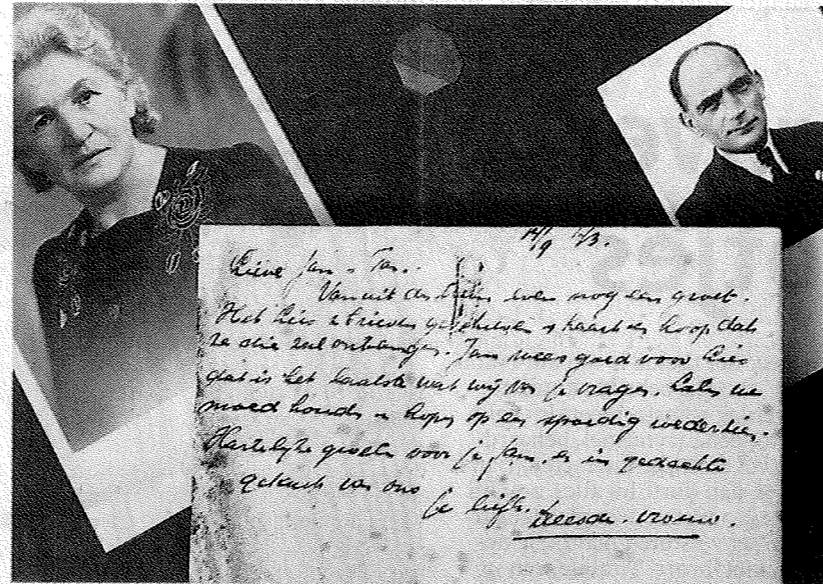 14/9 43.
Lieve Jan & Tan..
Vanuit de trein even nog een groet.
Heb Lies 2 brieven geschreven & kaart en hoop dat
ze die zal ontvangen. Jan wees goed voor Lies
dat is het laatste wat wij van je vragen. Laten we
moed houden en hopen op een spoedig wederzien.
Hartelijke groeten voor je fam. en in gedachte
gekust van ons
je liefh.